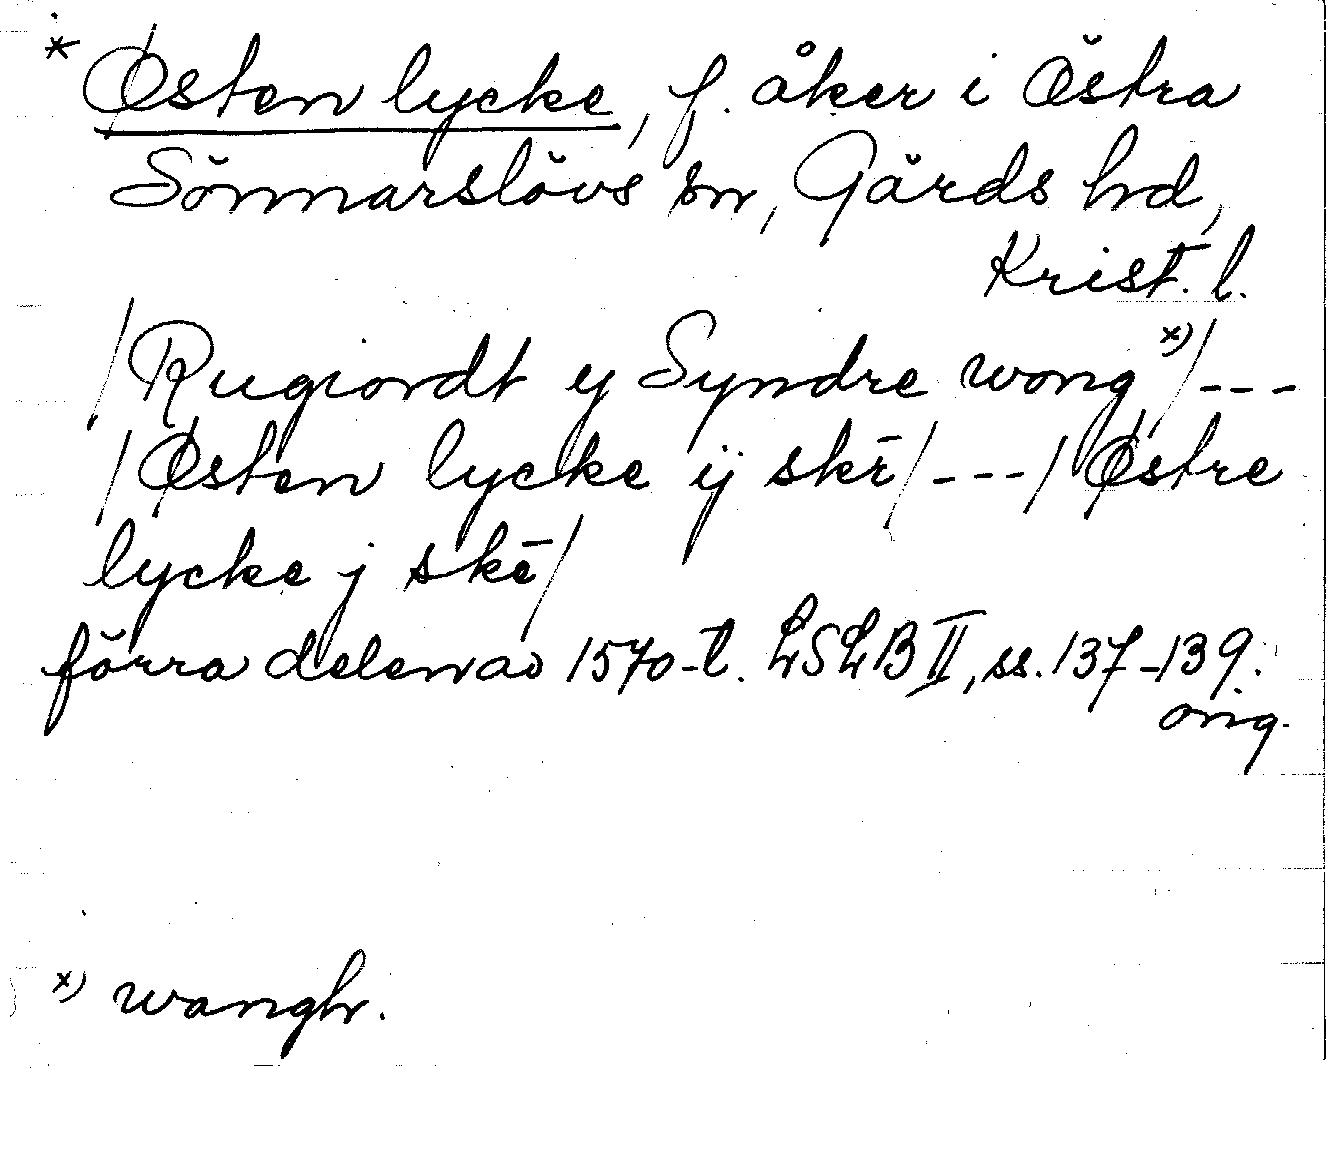 * Østen lycke, f. åker i Östra
Sönnarslövs sn, Gärds hd,
Krist. l.
/Rugiordt y Syndre wong x)/---
/Østen lycke ij skē/---/Østre
lycke j skē/
förra delen av 1570-t. LSLB II, ss. 137-139.
orig.
x) wanghr.